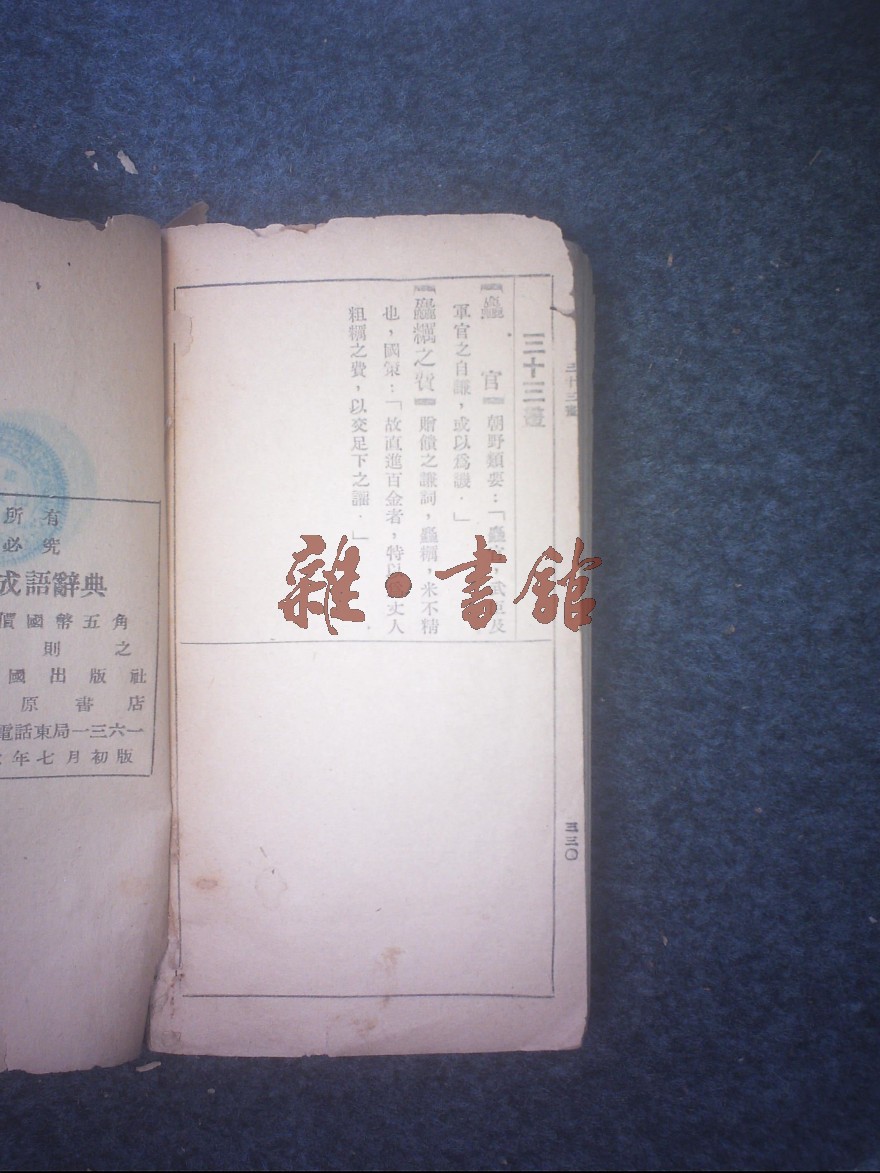 三十三畫
三十三畫
【麤 官】 朝野類要：「麤官，武臣及
軍官之自謙，或以爲譏．」
【麤糲之費】 贈饋之謙詞，麤糲，米不精
也，國策：「故直進百金者，特以爲丈人
粗糲之費，以交足下之讙．」
三三〇
雜·書館
所有
必究
成語辭典
價國幣五角
則之
國出版社
原書店
電話東局一三六一
年七月初版